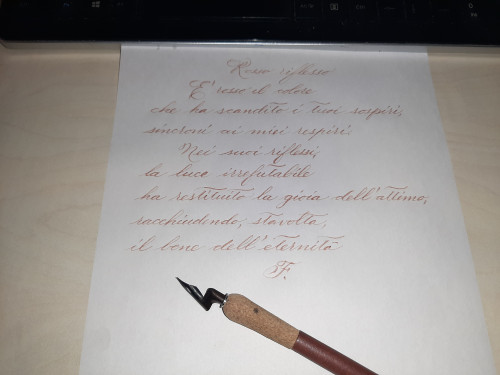 Rosso riflesso
E' rosso il colore
che ha scandito i tuoi sospiri,
sincroni ai miei respiri.
Nei suoi riflessi,
la luce irrefutabile
ha restituito la gioia dell'attimo,
racchiudendo, stavolta,
il bene dell'eternità
F.